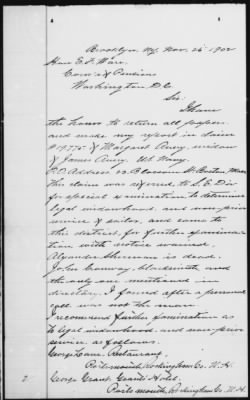 4
Brooklyn, Ny, Nov. 26 1902
Hon E. F. Ware.
Com'r of Pensions
Washington D.C.
Sir:
I have
the honor to return all papers
and make my report in claim
of Margaret Avery, widow
of James Avery U.S. Navy.
P.O. Address 23 Blossom St. Boston Mass
This claim was referred to S. E. Div
for special examination to determine
legal widowhood and non prior
service of sailor, and came to
this district, for further examina-
tion with notice waived.
Alexander Sherman is dead.
John Conway, blacksmith and
the only one mentioned in
directory, I found after a personal
was not the man
I recommend further examination as
to legal widowhood and non-prior
service, as follows.
George Lane, Restaurant,
Portsmouth, Rockingham Co. N.H.
George Grant, Grants Hotel,
Portsmouth, Rockingham Co. N.H.